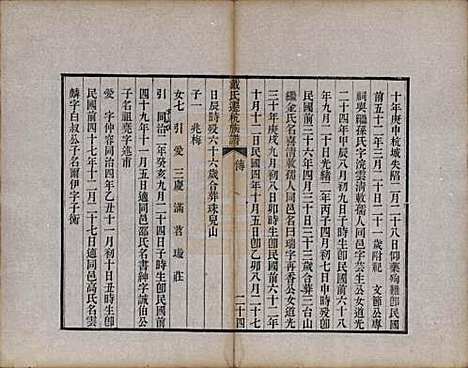 十年庚申杭城失陷二月二十八日仰藥殉難即民國
前五十二年三月二十日二十一歲附祀 文節公專
祠與繼孫氏字浣雲清敕孺人同邑名字芸生公女道光
二十四年甲辰八月初九日子時生即民國前六十八
年九月二十日光緒二年丙子四月初七日申時歿即
民國前三十六年四月三十日三十三歲合葬三台山
繼金氏名喜清敕孺人同邑名日瑞字再香公女道光
三十年庚戌九月初八日卯時生即民國前六十二年
十月十二日民國四年十月五日即乙卯八月二十七
戴氏遷杭族譜 傳 二十四
日辰時歿六十六歲合葬珠兒山
子一 兆梅
女七 引 愛 三慶 滿 苕 璇 莊
引 同治二年癸亥九月二十四日子時生即民國前
四十九年十一月五日適同邑邵氏名書紳字誠伯公
子名祖堯字逵甫
愛 字仲容同治四年乙丑十一月初十日丑時生即
民國前四十七年十二月二十七日適同邑高氏名雲
麟字白叔公子名爾伊字子衡